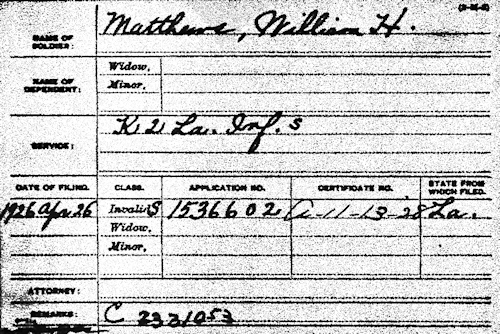 (3-M-5)
NAME OF SOLDIER: Matthews, William H.
NAME OF DEPENDENT: Widow,
Minor,
SERVICE: K 2 La. Inf. S
DATE OF FILING. CLASS. APPLICATION NO. CERTIFICATE NO. STATE FROM WHICH FILED.
1926 Apr 26 Invalid S 1536602 A-11-13-28 La.
Widow,
Minor,
ATTORNEY:
REMARKS: C 2331053